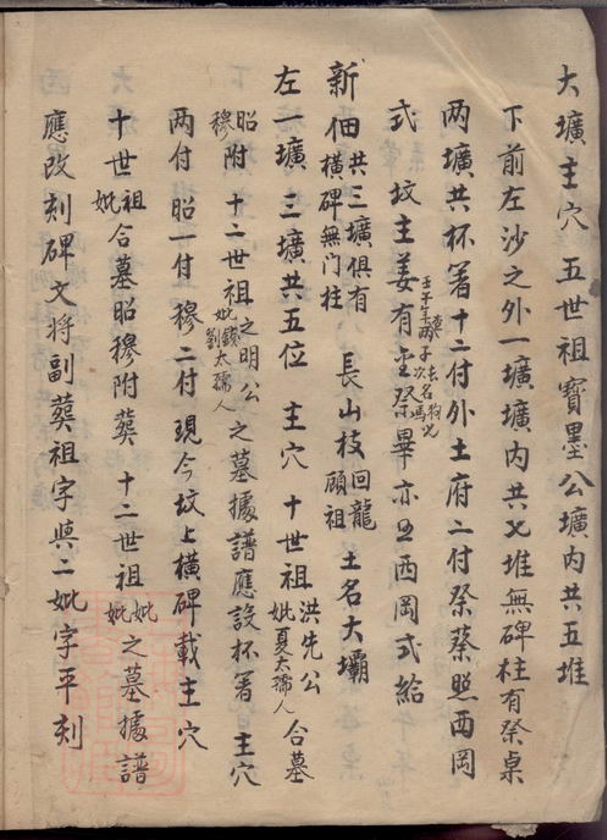 大壙主穴 五世祖寶墨公壙内共五堆
下前左沙之外一壙壙内共乂堆無碑柱有祭桌
两壙共杯箸十二付外土府二付祭蔡照西岡
式 坟主姜有 祭畢亦 西岡式給
新佃共三壙俱有橫碑無门柱 長山枝回龍顧祖 土名大壩
左一壙 三壙共五位 主穴 十世祖洪先公妣夏太孺人合墓
昭穆附 十二世祖之明公妣劉太孺人之墓據譜應設杯箸 主穴
两付昭一付穆二付現今坟上橫碑載主穴
十世祖妣合墓昭穆附葬 十二世祖妣妣之墓據譜
應改刻碑文將副葬祖字與二妣字平刻